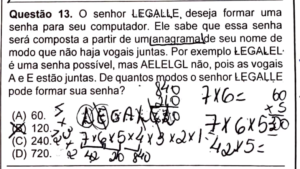 Questão 13. O senhor LEGALLE, deseja formar uma
senha para seu computador. Ele sabe que essa senha
será composta a partir de um anagrama de seu nome de
modo que não haja vogais juntas. Por exemplo LEGALEL
é uma senha possível, mas AELELGL não, pois as vogais
A e E estão juntas. De quantos modos o senhor LEGALLE
pode formar sua senha?
(A) 60.
120.
(C) 240.
(D) 720.
7x6x5x4x3x2x1
42 20
840
7x6=
7x6x5
42x5=